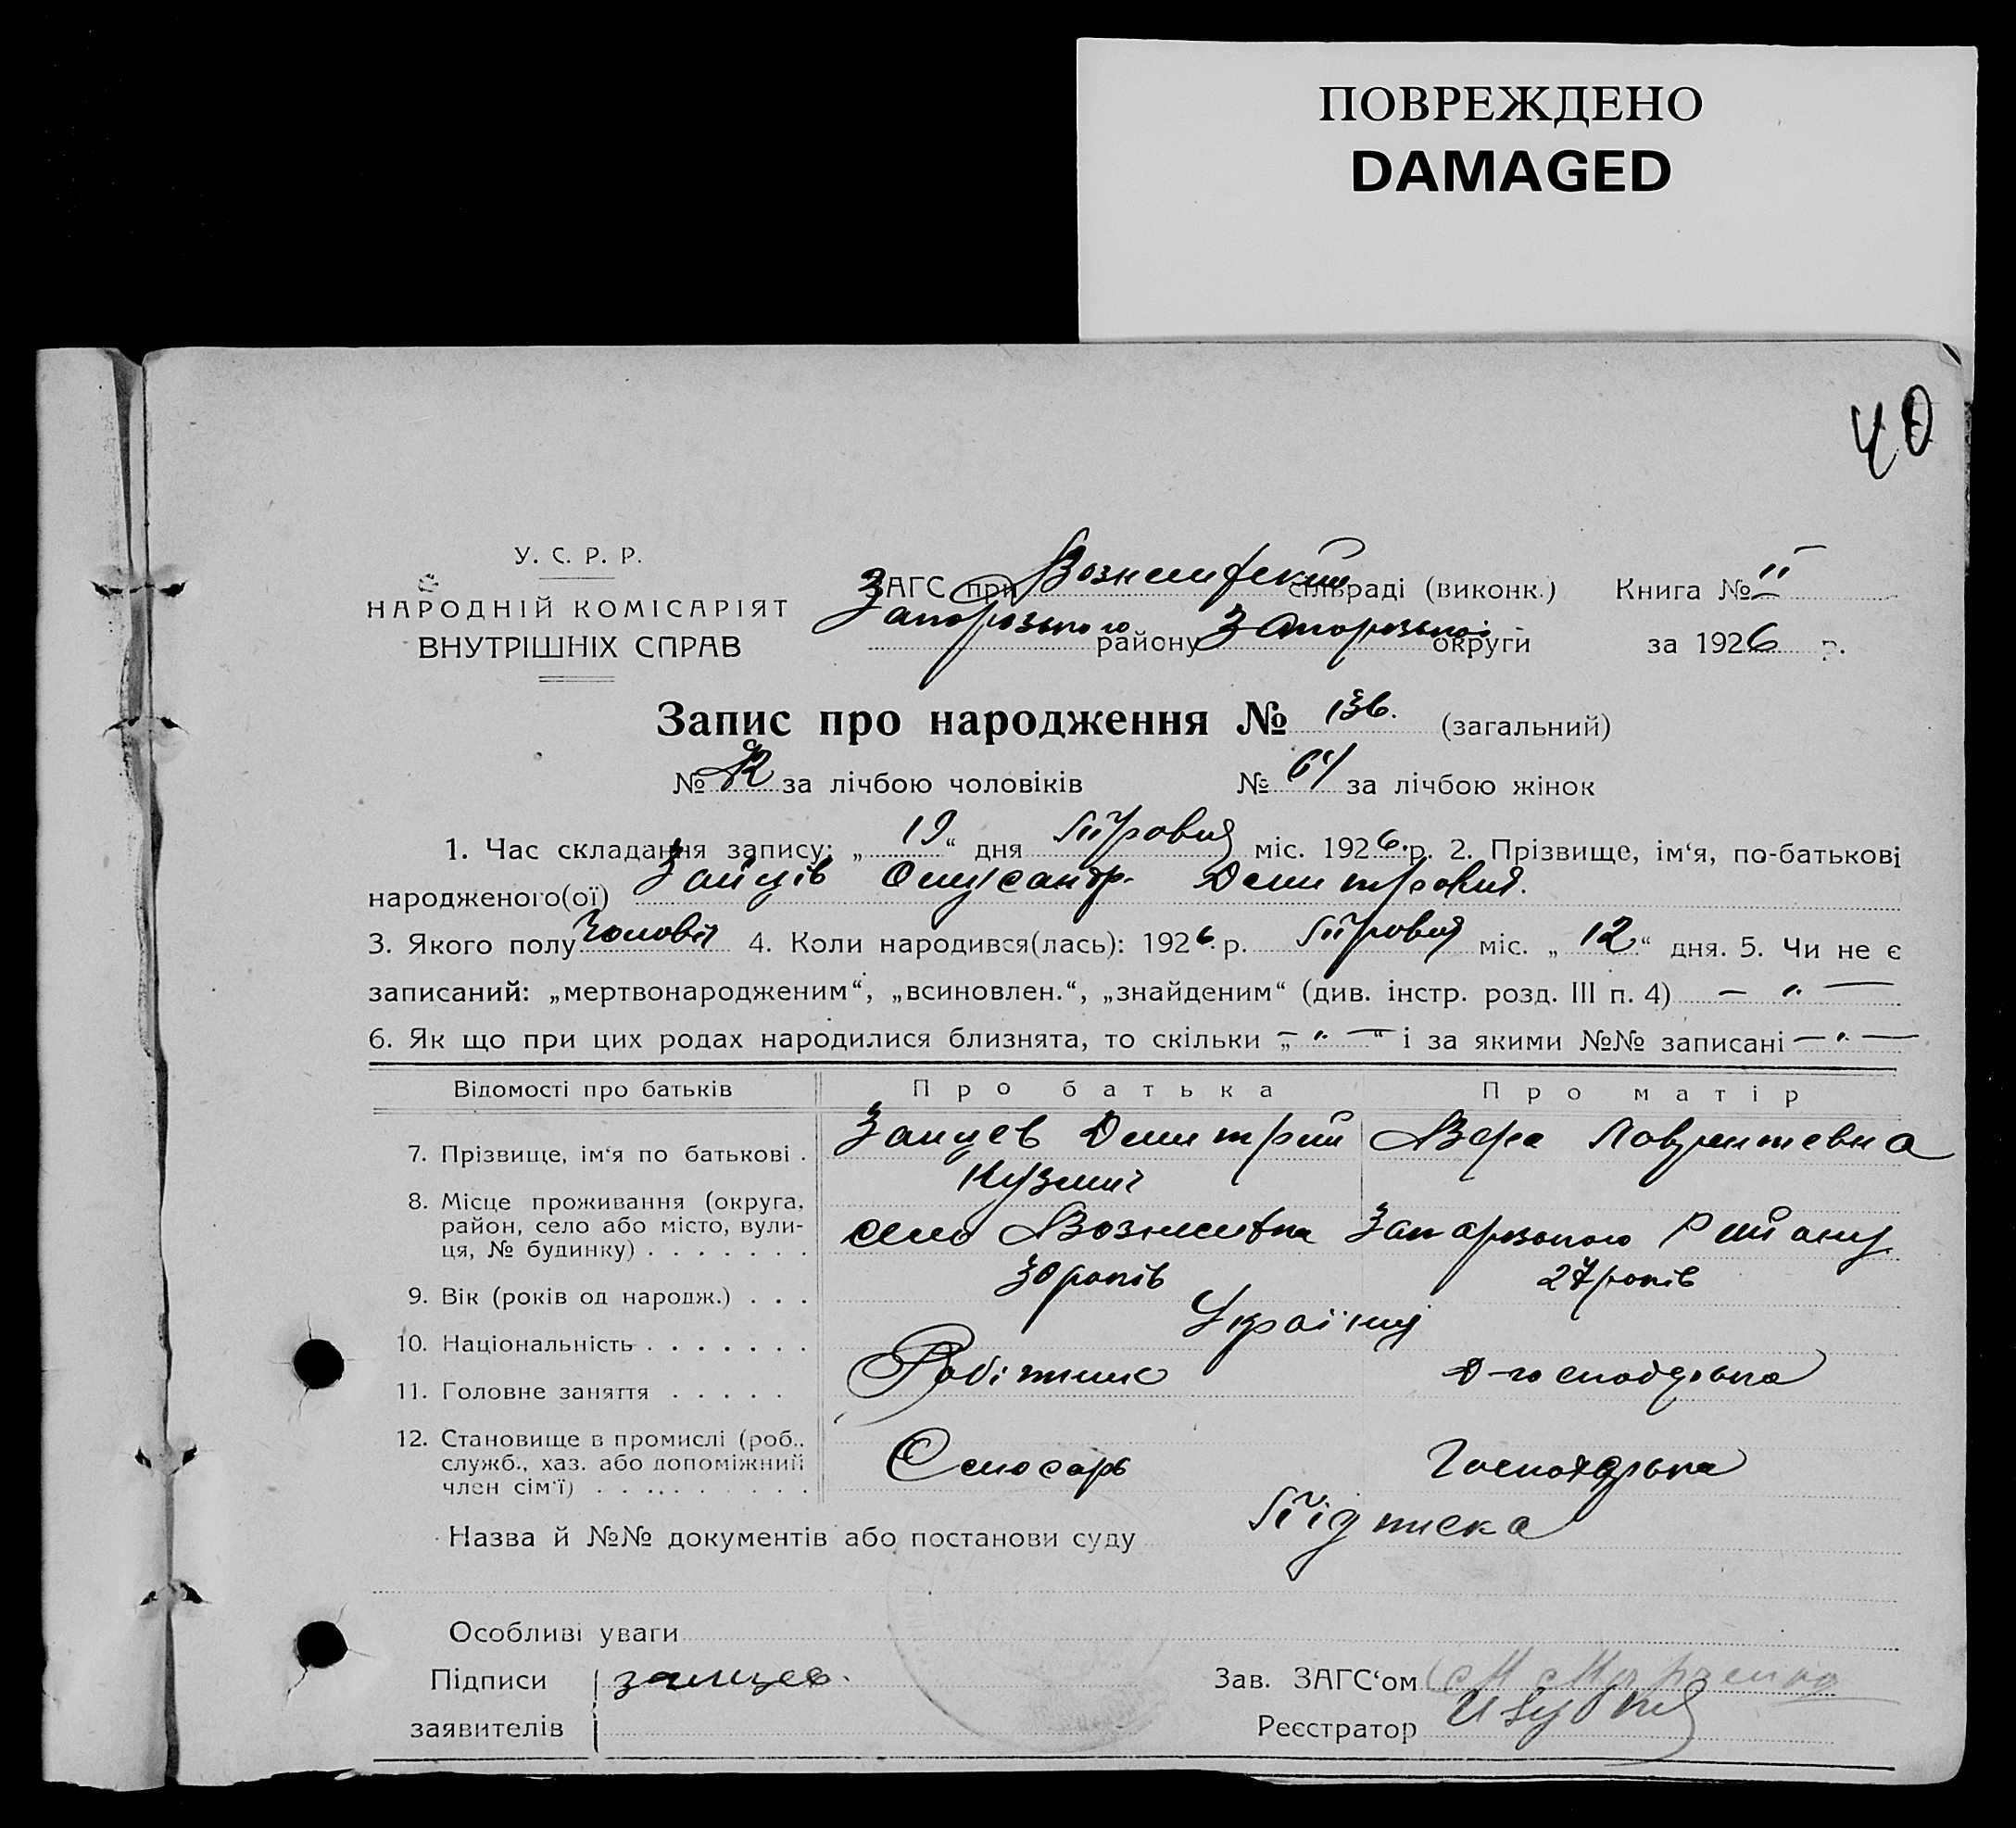 ПОВРЕЖДЕНО
DAMAGED
40
У. С. Р. Р.
НАРОДНІЙ КОМІСАРІЯТ
ВНУТРІШНІХ СПРАВ
ЗАГС при сільраді (виконк.) Книга № II
Запорозького району Запорозької округи за 1926 р.
Запис про народження № 136. (загальний)
№ за лічбою чоловіків № 64 за лічбою жінок
1. Час складання запису: „ 19 “ дня міс. 1926 р. 2. Прізвище, ім‘я, по-батькові
народженого(ої) Зайців Олександр
3. Якого полу 4. Коли народився(лась): 1926 р. міс. „ 12 “ дня. 5. Чи не є
записаний: „мертвонародженим“, „всиновлен.“, „знайденим“ (див. інстр. розд. III п. 4) — „ —
6. Як що при цих родах народилися близнята, то скільки „ — „ — “ і за якими №№ записані — „ —
Відомості про батьків Про батька Про матір
7. Прізвище, ім‘я по батькові . Зайцев Дмитрий Вера Лаврентевна
Кузмич
8. Місце проживання (округа,
район, село або місто, вули-
ця, № будинку) . . . . . . . село Запорозького Району
9. Вік (років од народж.) . . . 30 років 27 років
10. Національність . . . . . . . Українці
11. Головне заняття . . . . . Робітник Д-господарка
12. Становище в промислі (роб.,
служб., хаз. або допоміжний
член сім‘ї) . . . . . . . . . . Слюсарь Господарка
Назва й №№ документів або постанови суду Підписка
Особливі уваги
Підписи
заявителів
Зайцев.
Зав. ЗАГС‘ом
Реєстратор